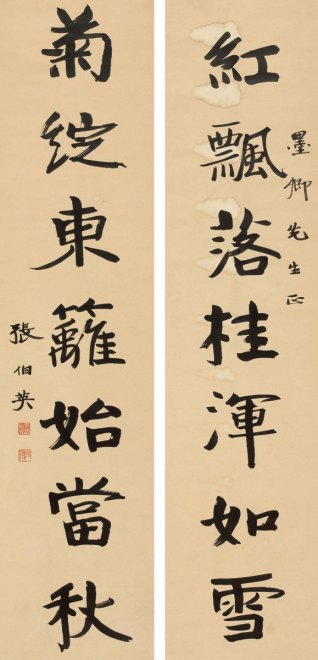 紅飄落桂渾如雪
墨卿先生正
菊綻東籬始當秋
張伯英